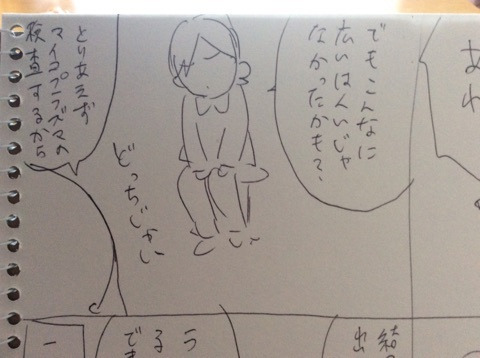 あ
れ
でもこんなに
広いはんいじゃ
なかったかも?、
どっちじゃい
とりあえず
マイコプラズマの
検査するから
結
出
う
る
でき
一